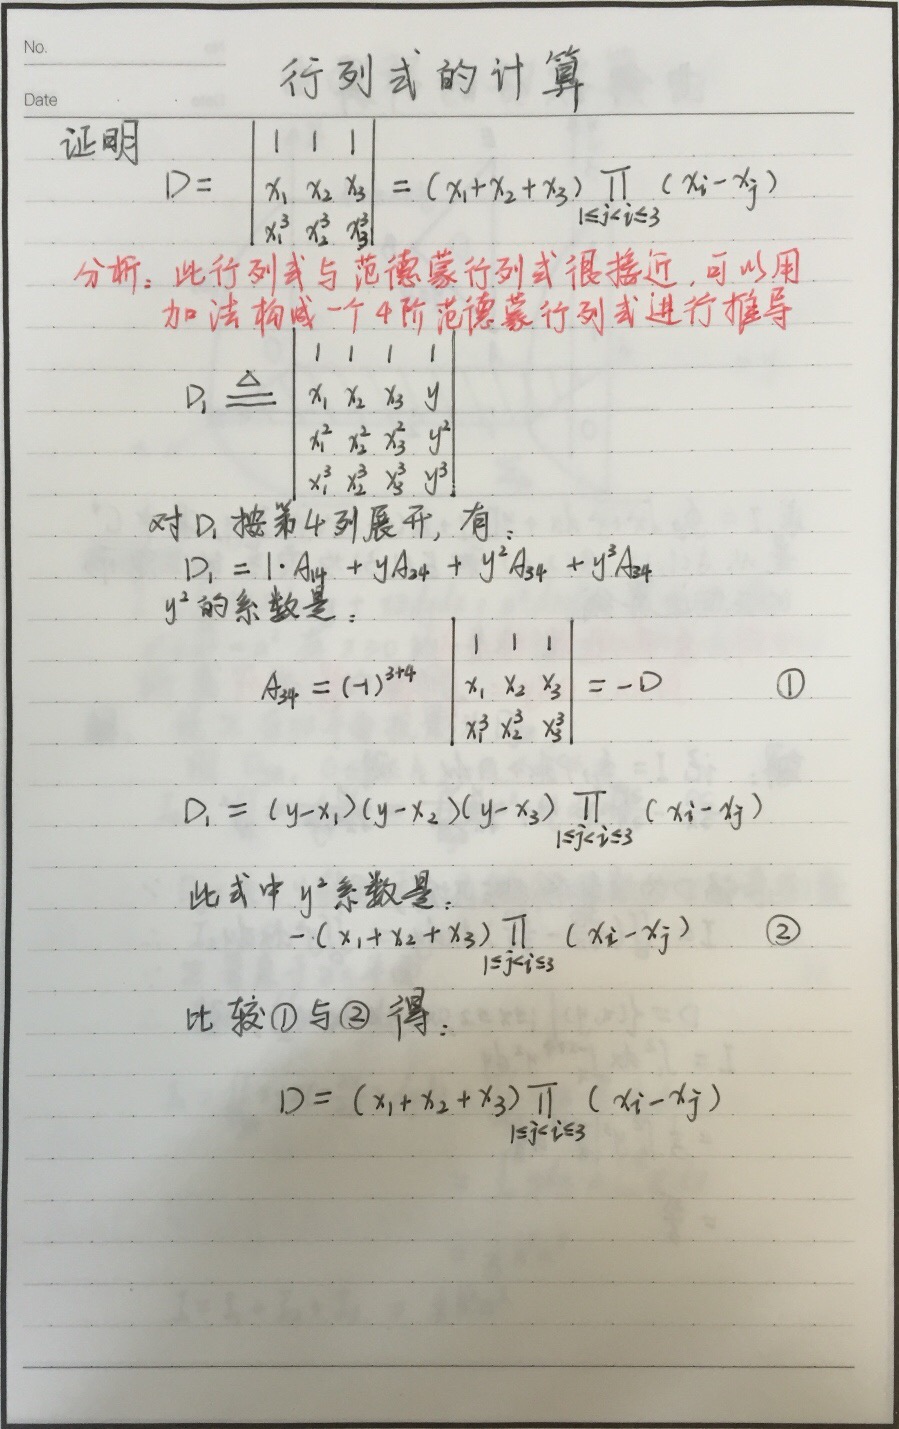 No.
Date
行列式的计算
证明
D = | 1 1 1 |
| x₁ x₂ x₃ | = (x₁+x₂+x₃) ∏ (xᵢ-xⱼ)
| x₁³ x₂³ x₃³ | 1≤j<i≤3
分析：此行列式与范德蒙行列式很接近，可以用
加法构成一个4阶范德蒙行列式进行推导
| 1 1 1 1 |
D₁ ≜ | x₁ x₂ x₃ y |
| x₁² x₂² x₃² y² |
| x₁³ x₂³ x₃³ y³ |
对D₁按第4列展开，有：
D₁ = 1·A₁₄ + yA₂₄ + y²A₃₄ + y³A₃₄
y²的系数是：
| 1 1 1 |
A₃₄ = (-1)³⁺⁴ | x₁ x₂ x₃ | = -D ①
| x₁³ x₂³ x₃³ |
D₁ = (y-x₁)(y-x₂)(y-x₃) ∏ (xᵢ-xⱼ)
1≤j<i≤3
此式中y²系数是：
-(x₁+x₂+x₃) ∏ (xᵢ-xⱼ) ②
1≤j<i≤3
比较①与②得：
D = (x₁+x₂+x₃) ∏ (xᵢ-xⱼ)
1≤j<i≤3